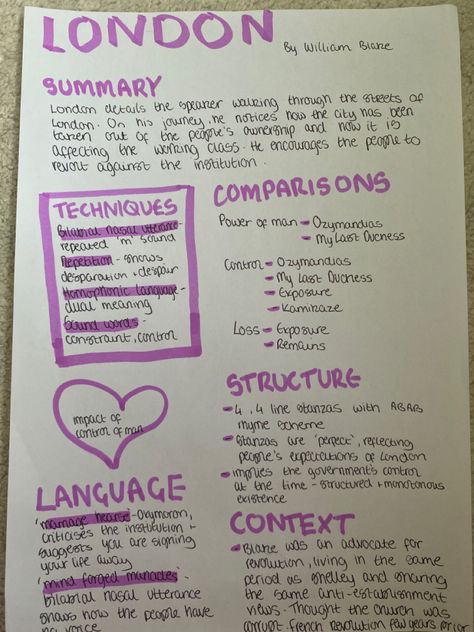 LONDON
By William Blake
SUMMARY
London details the speaker walking through the streets of
London. On his journey, he notices how the city has been
taken out of the people's ownership and now it is
affecting the working class. He encourages the people to
revolt against the institution.
TECHNIQUES
Bilabial nasal utterance-
repeated 'm' sound
Repetition - shows
desparation + despair
Homophonic language-
dual meaning
Sound words -
constraint, control
COMPARISONS
Power of man - Ozymandias
- My Last Duchess
Control - Ozymandias
- My Last Duchess
- Exposure
- Kamikaze
Loss - Exposure
- Remains
impact of
control of man
STRUCTURE
- 4, 4 line stanzas with ABAB
rhyme scheme
- Stanzas are 'perfect', reflecting
people's expectations of London
- implies the government's control
at the time - structured + monotonous
existence
LANGUAGE
'marriage hearse'-Oxymoron,
criticises the institution +
suggests you are signing
your life away
'mind forged manacles'-
bilabial nasal utterance
shows how the people have
no voice
CONTEXT
- Blake was an advocate for
revolution, living in the same
period as Shelley and sharing
the same anti-establishment
views. Thought the church was
corrupt. French revolution few years prior